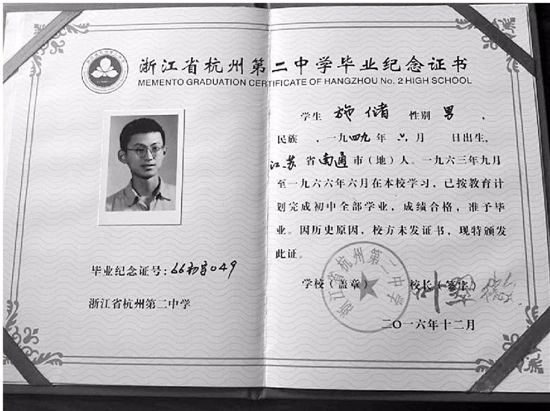 浙江省杭州第二中学毕业纪念证书
MEMENTO GRADUATION CERTIFICATE OF HANGZHOU No. 2 HIGH SCHOOL
毕业纪念证号：66初字049
浙江省杭州第二中学
学生 施储 性别 男 ，
民族 ，一九四九年 六月 日出生，
江苏省南通市（地）人。一九六三年九月
至一九六六年六月在本校学习，已按教育计
划完成初中全部学业，成绩合格，准予毕
业。因历史原因，校方未发证书，现特颁发
此证。
学校（盖章） 校长（签名）
浙江省杭州第二中学
二〇一六年十二月